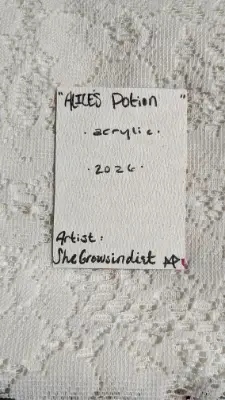 "ALICE'S Potion "
· acrylic ·
· 2026 ·
Artist:
SheGrowsindirt AP